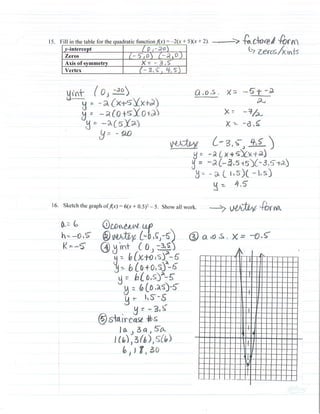 15. Fill in the table for the quadratic function f(x) = –2(x + 5)(x + 2) → factored form
↳ zeros/x ints
y-intercept (0, -20)
Zeros (-5, 0) (-2, 0)
Axis of symmetry x = -3.5
Vertex (-3.5, 4.5)
y int (0, -20)
y = -2(x+5)(x+2)
y = -2(0+5)(0+2)
y = -2(5)(2)
y = -20
a.o.s. x = -5 + -2
2
x = -7/2
x = -3.5
vertex (-3.5, 4.5)
y = -2(x+5)(x+2)
y = -2(-3.5+5)(-3.5+2)
y = -2(1.5)(-1.5)
y = 4.5
16. Sketch the graph of f(x) = 6(x + 0.5)² – 5. Show all work. → vertex form
a = 6
h = -0.5
k = -5
① concave up
② vertex (-0.5, -5)
③ a.o.s. x = -0.5
④ y int (0, -3.5)
y = 6(x+0.5)²-5
y = 6(0+0.5)²-5
y = 6(0.5)²-5
y = 6(0.25)-5
y = 1.5-5
y = -3.5
⑤ staircase #s
1a, 3a, 5a
1(6), 3(6), 5(6)
6, 18, 30